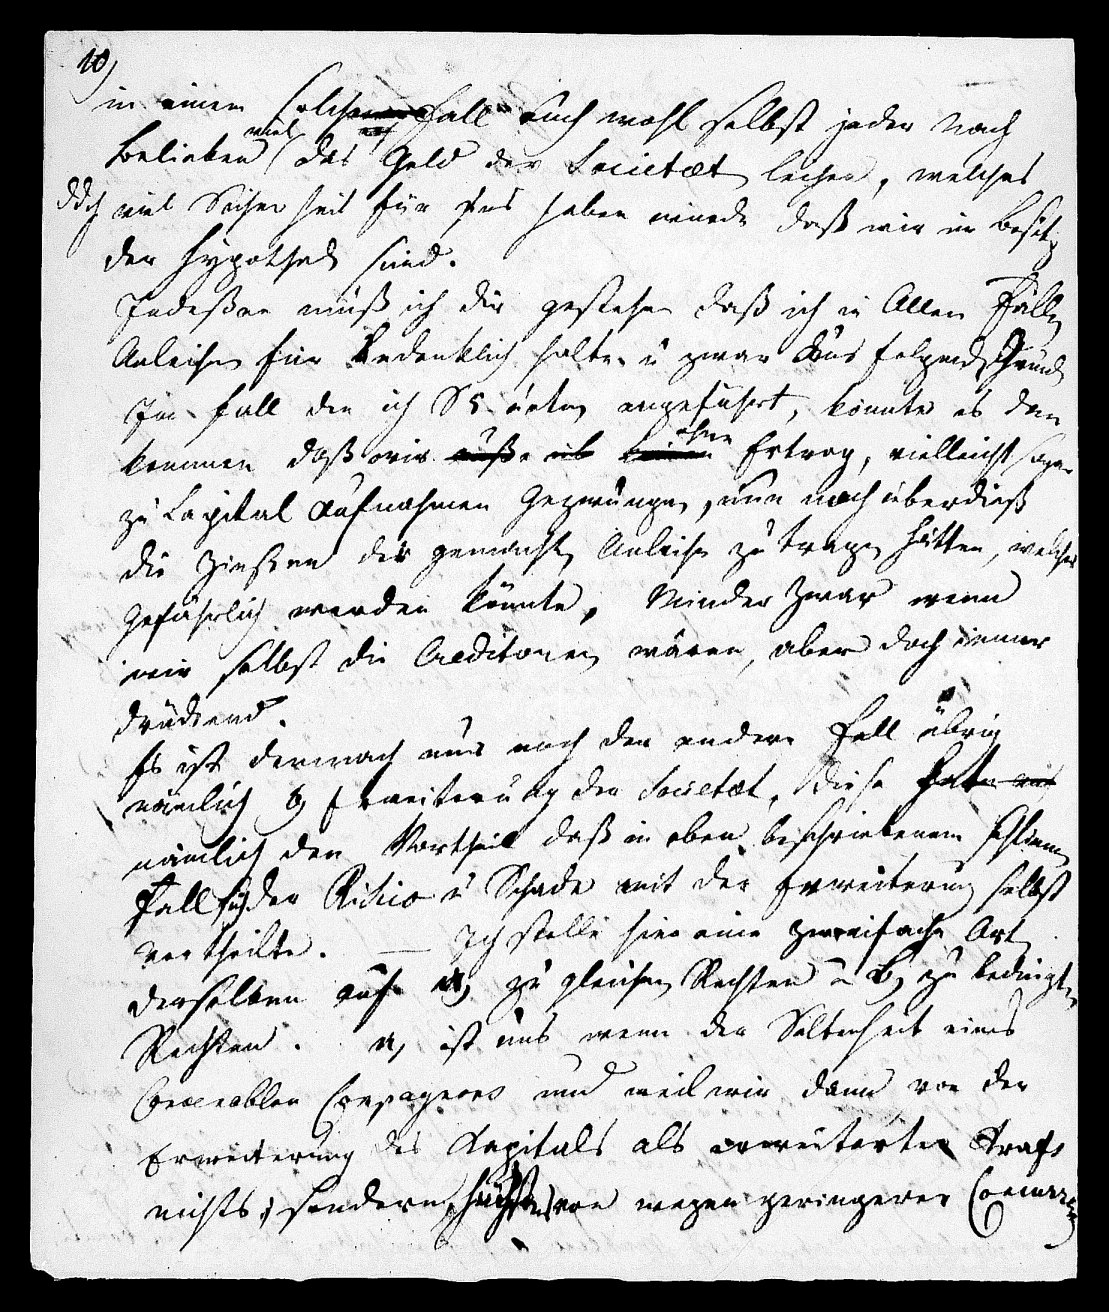 10)
in einem solchen Fall auch wohl selbst jeder nach
Belieben viel das Geld der Societæt leihen, welches
viel Sicherheit für sich haben würde daß wir im Besitz
der Hypothek sind.
Indeßen muß ich dir gestehen daß ich in Allen Fällen
Anleihen für bedenklich halte u zwar aus folgend Grund
Im Fall den ich S 5 unten angeführt, könnte es dann
kommen daß wir ohne Ertrag, vielleicht sogar
zu Capital Aufnahmen gezwungen, nun noch überdieß
die Zinsen der gemachten Anleihe zu tragen hätten, welches
gefährlich werden könnte, Minder zwar wenn
wir selbst die Creditoren wären, aber doch immer
drückend.
Es ist demnach nur noch der andere Fall übrig
nämlich Erweiterung der Societæt, diese hat
nämlich den Vortheil daß in oben beschriebenem schlimmen
Fall der Risico u Schade mit der Erweiterung selbst
vertheilte. — Ich stelle hier eine zweifache Art
derselben auf a, zu gleichen Rechten u b, zu bedingten
Rechten. a, ist nur wenn der Seltenheit eines
Convenablen Compagnons und weil wir dann von der
Erweiterung des Kapitals als erweiterten
nichts, sondern höchstens von wegen geringerer Concurrenz